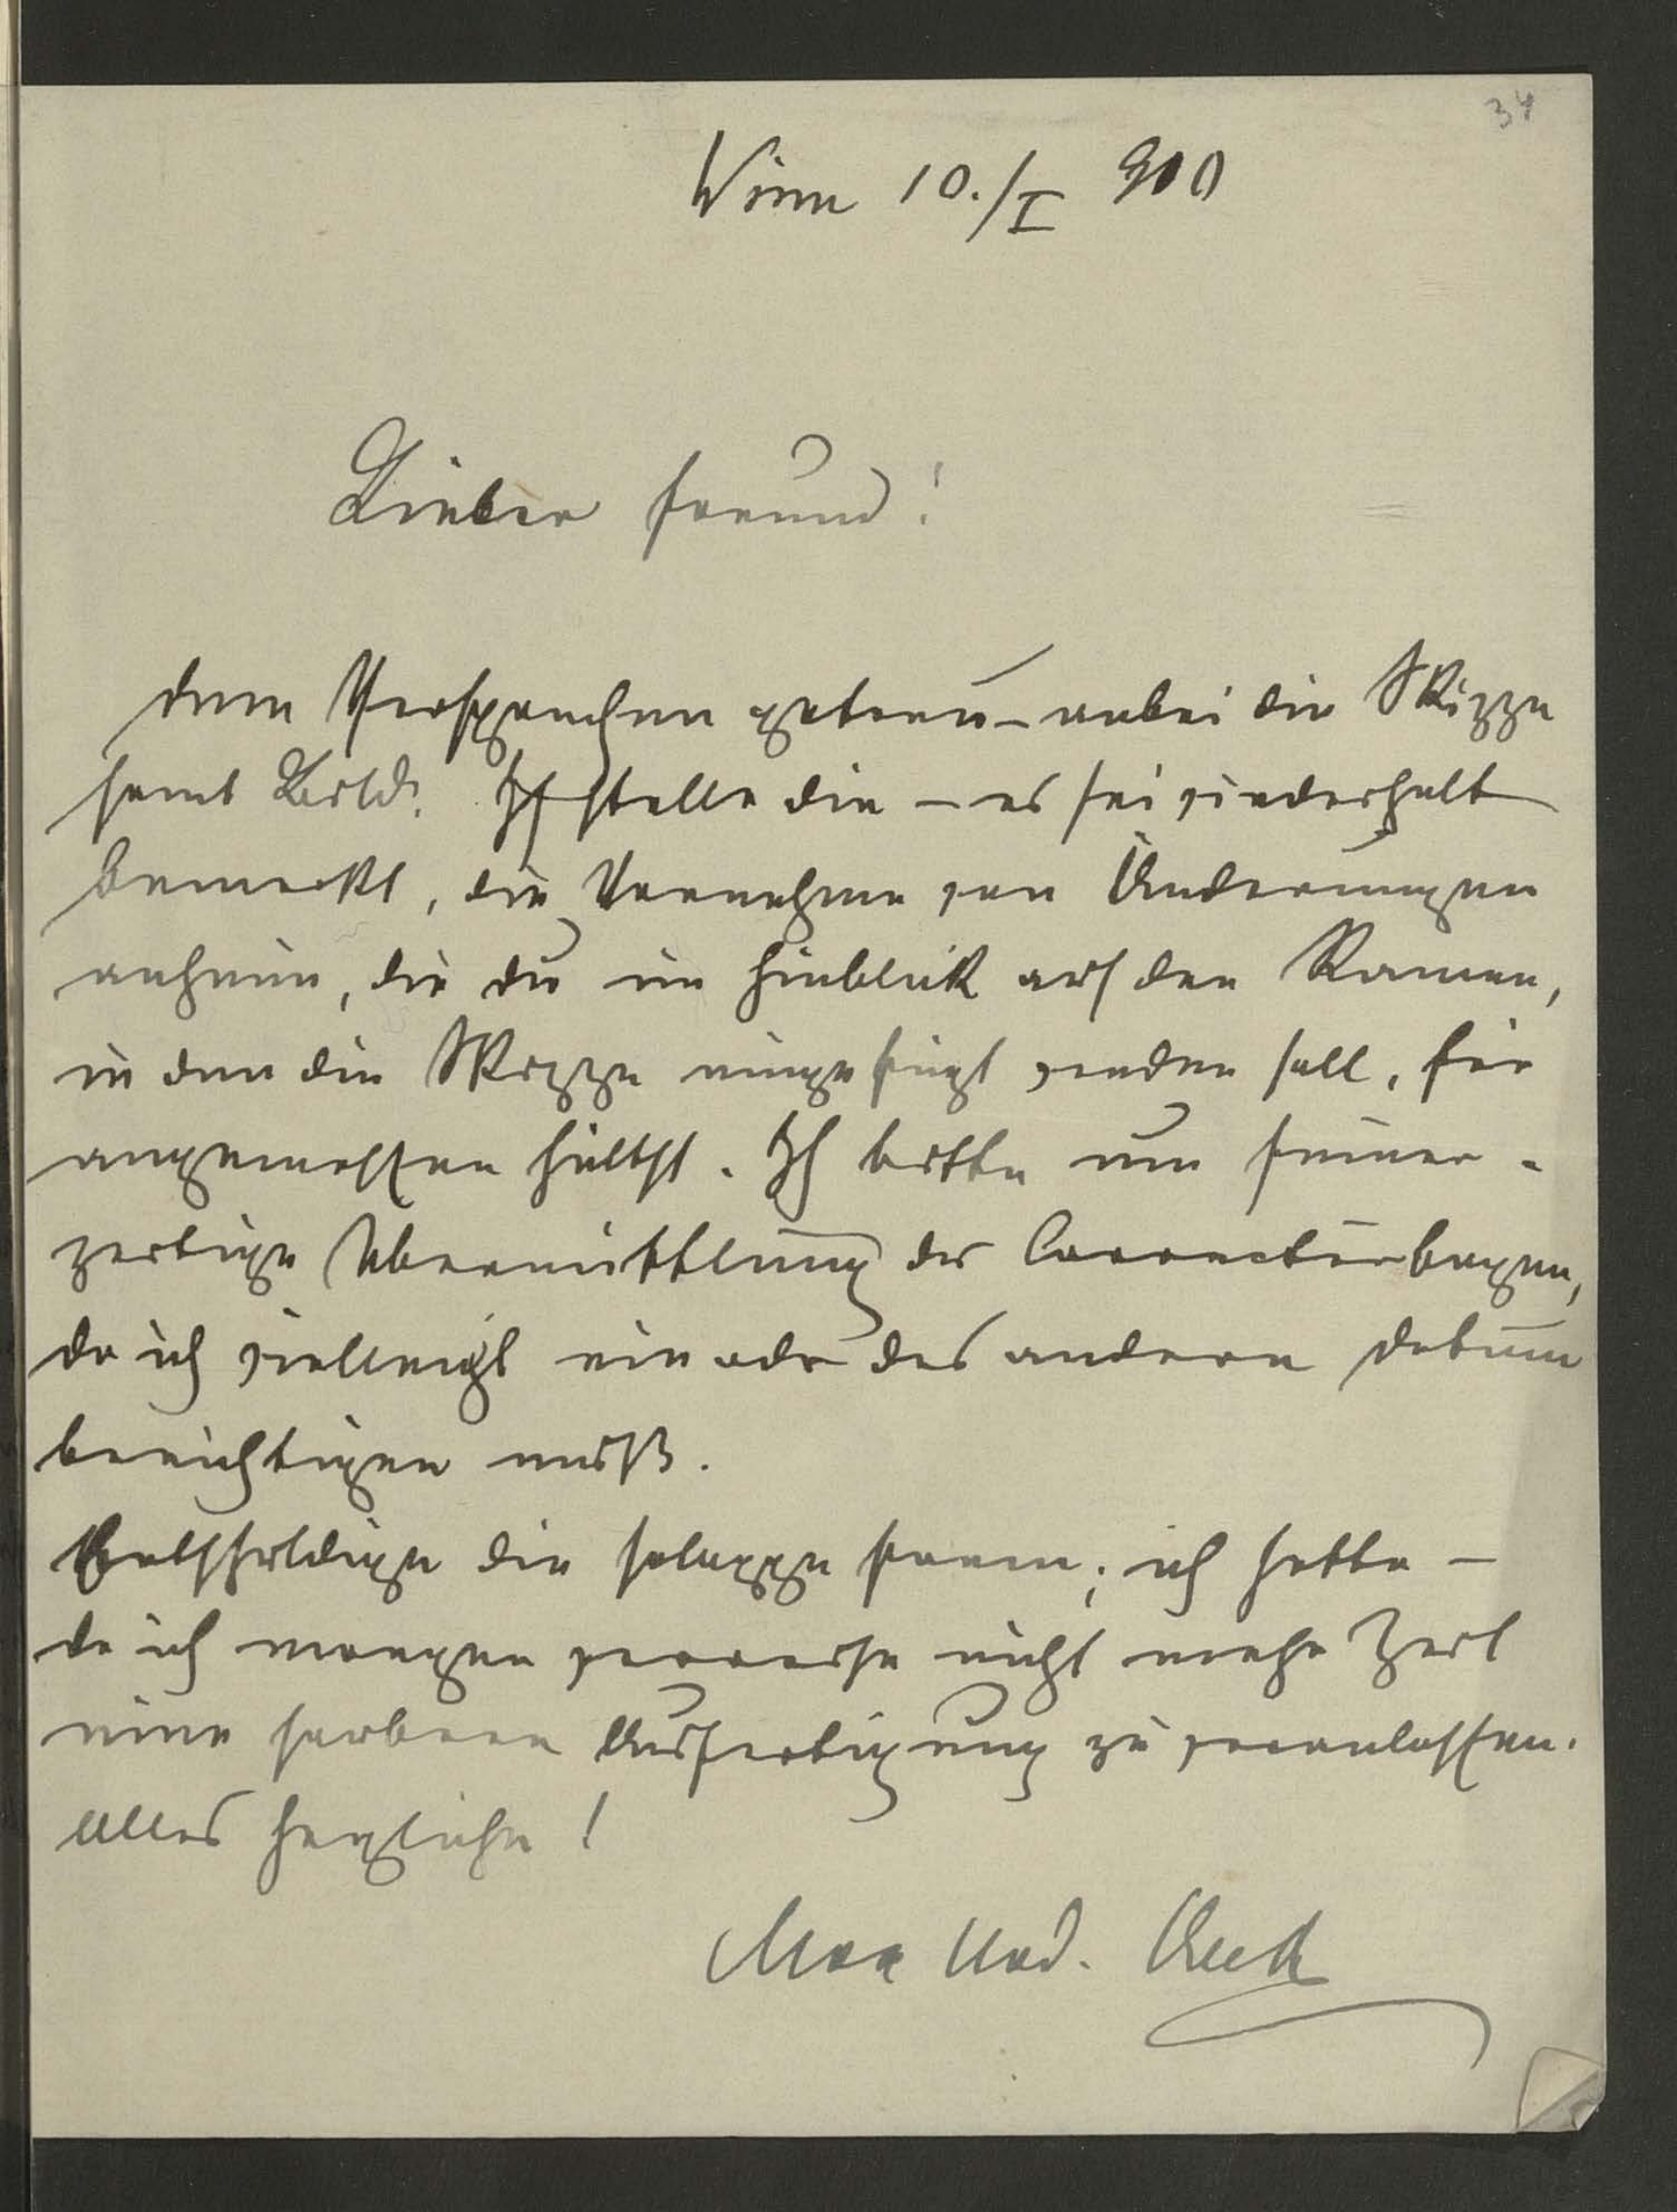 34
Wien 10./I 900
Lieber Freund!
dem Versprechen getreu – anbei die Skizze
samt Bild. Ich stelle dir – es sei wiederholt
bemerkt, die Vornahme von Änderungen
anheim, die du im Hinblick auf den Ramen,
in den die Skizze eingefügt werden soll, für
angemessen hältst. Ich bitte um seiner-
zeitige Übermittlung der Correcturbogen,
da ich vielleicht ein oder das andere Datum
berichtigen muß.
Entschuldige die saloppe Form; ich hatte –
da ich morgen verreise nicht mehr Zeit
eine saubere Ausfertigung zu veranlassen.
Alles Herzliche!
Max Wlad. Beck